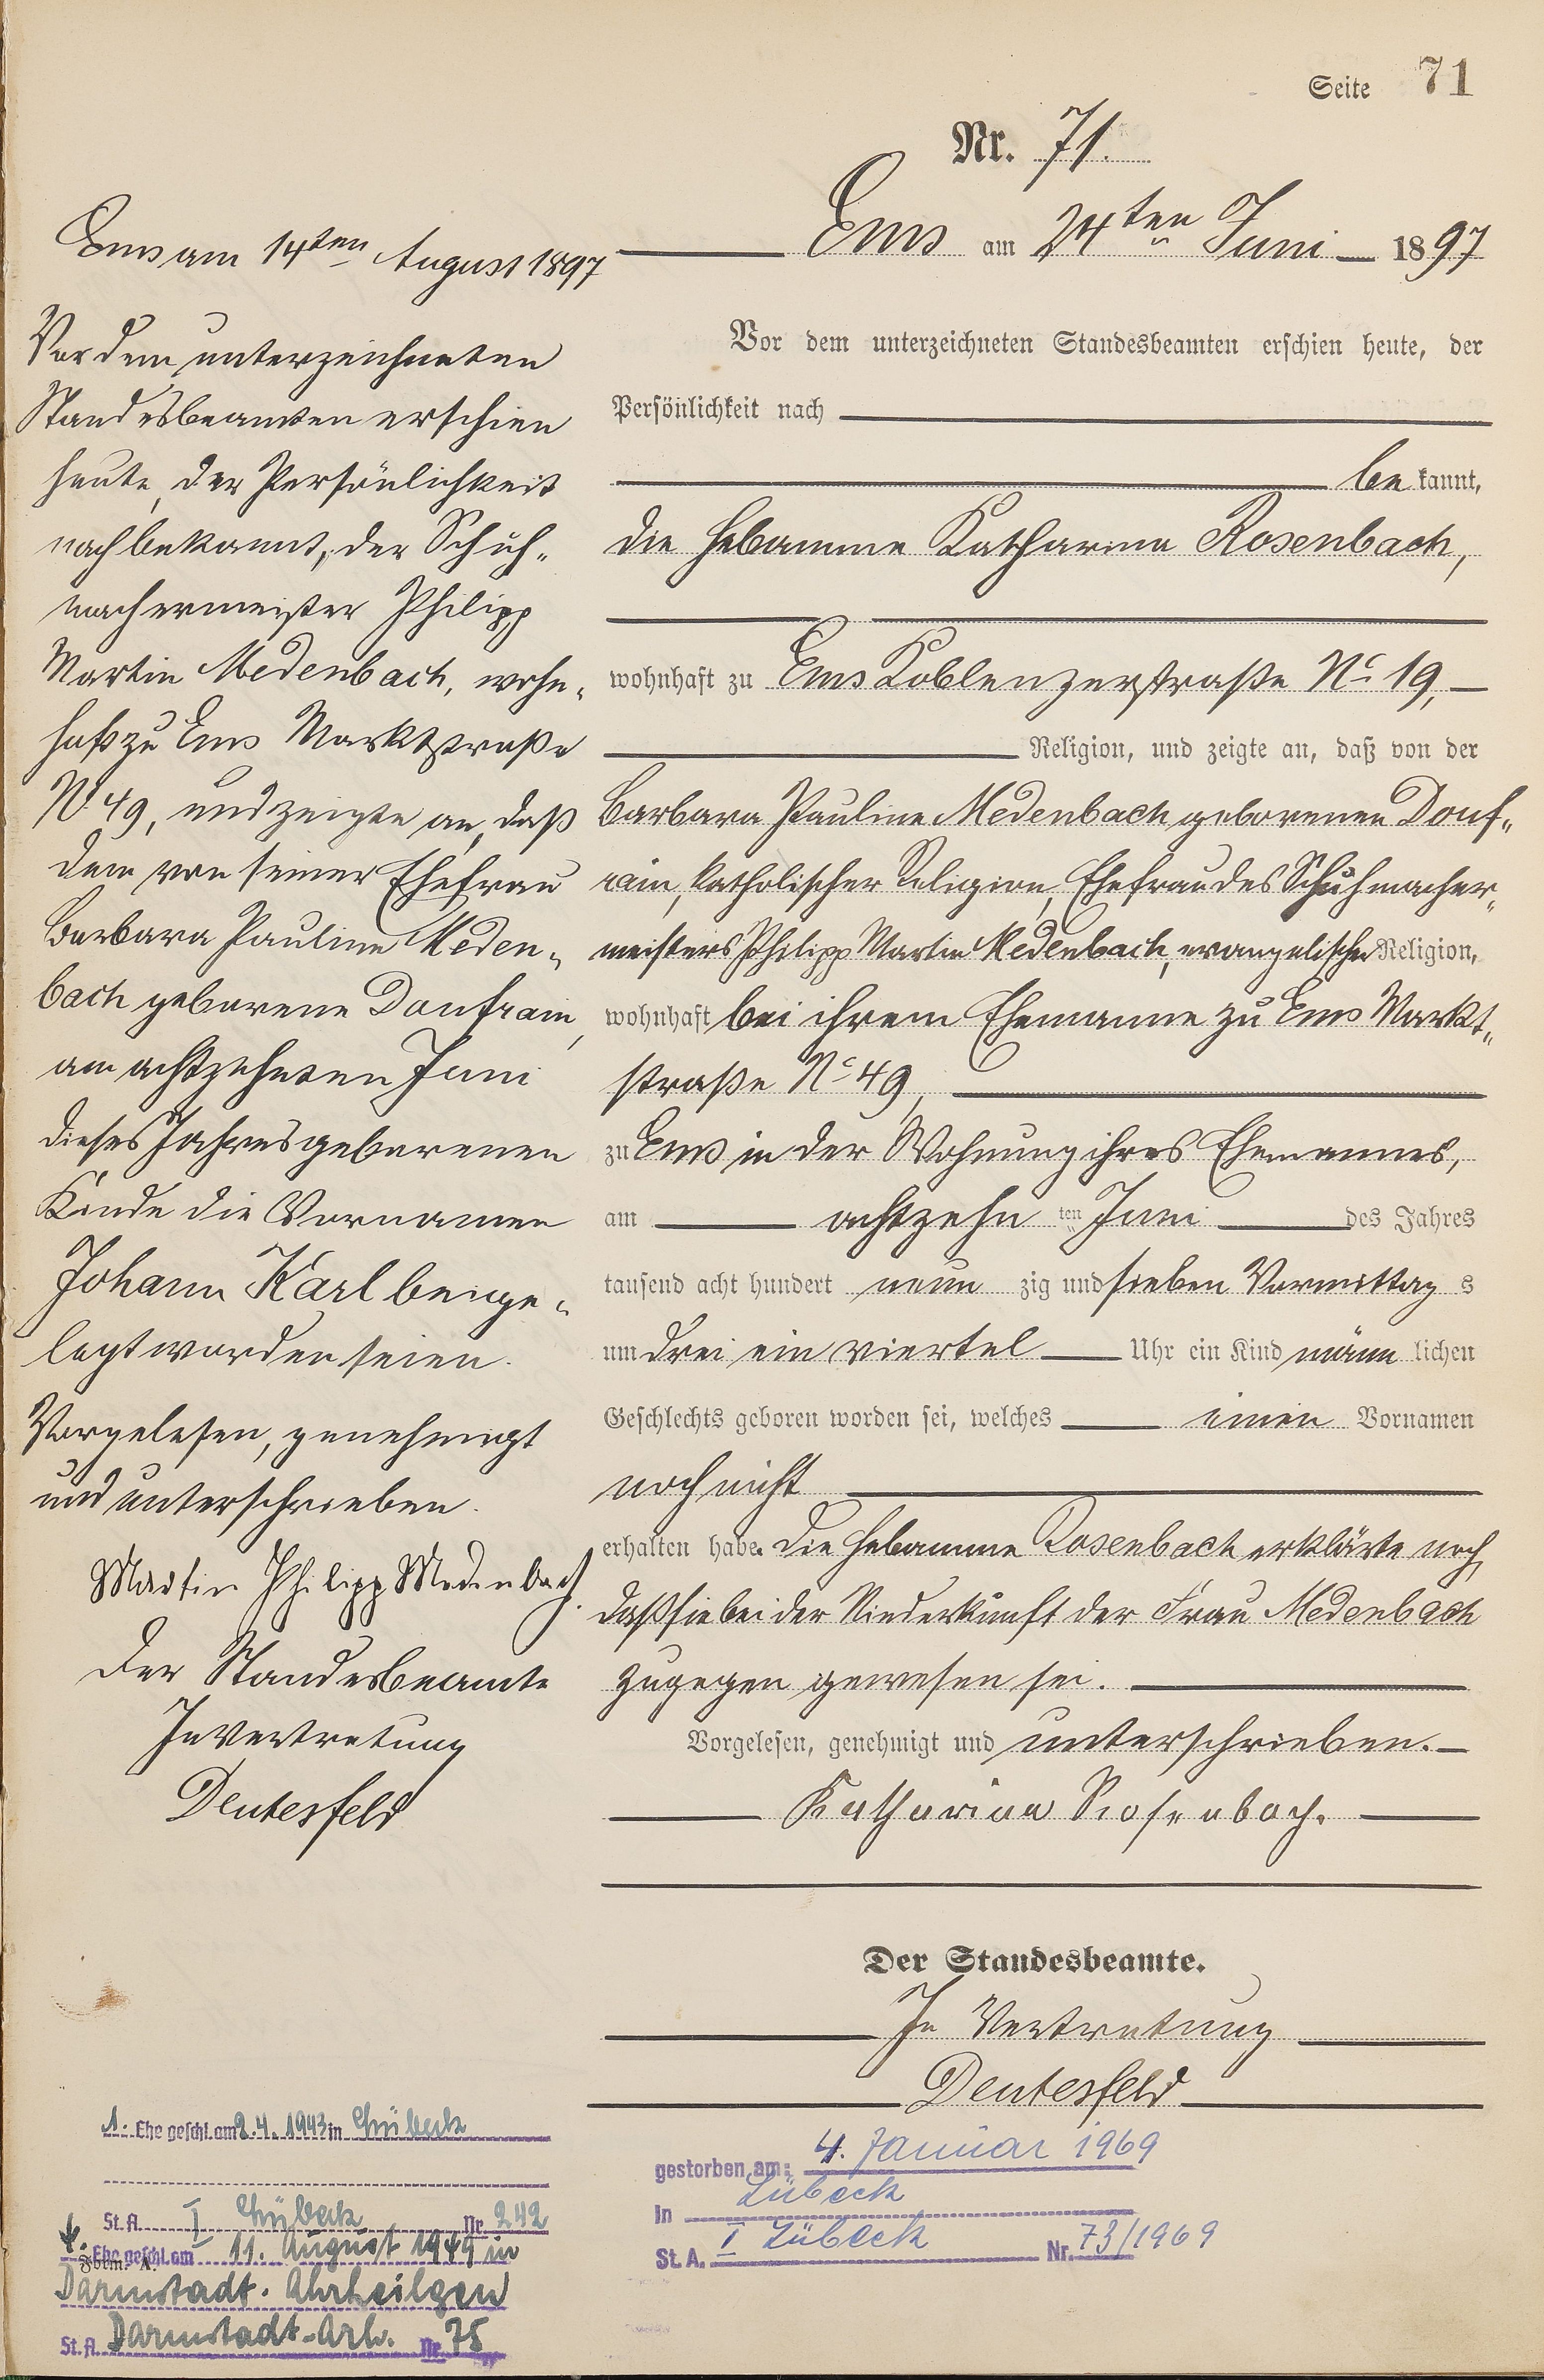 Seite 71
Nr. 71.
Ems am 24ten Juni 1897
Vor dem unterzeichneten Standesbeamten erschien heute, der
Persönlichkeit nach
bekannt,
die Hebamme Katharina Rosenbach,
wohnhaft zu Ems Koblenzerstraße No 19,
Religion, und zeigte an, daß von der
Barbara Pauline Medenbach geborenen Donf„
rain, katholischer Religion, Ehefrau des Schuhmacher„
meisters Philipp Martin Medenbach, evangelischer Religion,
wohnhaft bei ihrem Ehemanne zu Ems Markt„
straße No 49,
zu Ems in der Wohnung ihres Ehemannes,
am achtzehnten Juni des Jahres
tausend acht hundert neunzig und sieben Vormittags
um drei ein viertel Uhr ein Kind männlichen
Geschlechts geboren worden sei, welches einen Vornamen
noch nicht
erhalten habe. Die Hebamme Rosenbach erklärte noch,
daß sie bei der Niederkunft der Frau Medenbach
zugegen gewesen sei.
Vorgelesen, genehmigt und unterschrieben.
Katharina Rosenbach.
Der Standesbeamte.
In Vertretung
Deutesfeld
Ems am 14ten August 1897
Vor dem unterzeichneten
Standesbeamten erschien
heute, der Persönlichkeit
nach bekannt, der Schuh„
machermeister Philipp
Martin Medenbach, wohn„
haft zu Ems Marktstraße
No 49, und zeigte an, daß
dem von seiner Ehefrau
Barbara Pauline Meden„
bach geborene Donfrain,
am achtzehnten Juni
dieses Jahres geborenen
Kinde die Vornamen
Johann Karl beige„
legt worden seien.
Vorgelesen, genehmigt
und unterschrieben.
Martin Philipp Medenbach.
Der Standesbeamte
In Vertretung
Deutesfeld
1. Ehe geschl. am 2.4.1943 in Lübeck
St. A. I Lübeck Nr. 242
Ehe geschl. am 11. August 1949 in
Form. A.
Darmstadt-Arheilgen
St. A. Darmstadt-Arh. Nr. 75
gestorben am: 4. Januar 1969
in Lübeck
St. A. I Lübeck Nr. 73/1969